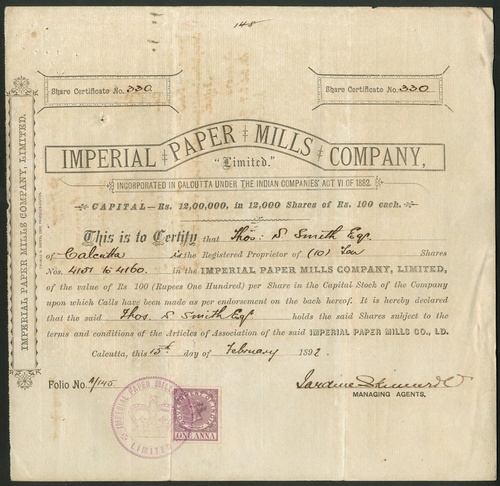 148
Share Certificate No. 330
Share Certificate No. 330
IMPERIAL PAPER MILLS COMPANY, LIMITED.
IMPERIAL PAPER MILLS COMPANY,
"Limited."
INCORPORATED IN CALCUTTA UNDER THE INDIAN COMPANIES' ACT VI OF 1882.
CAPITAL—Rs. 12,00,000, in 12,000 Shares of Rs. 100 each.
This is to Certify that Thos: S Smith Esqr
of Calcutta is the Registered Proprietor of (10) Ten Shares
Nos. 4151 to 4160. in the IMPERIAL PAPER MILLS COMPANY, LIMITED,
of the value of Rs 100 (Rupees One Hundred) per Share in the Capital Stock of the Company
upon which Calls have been made as per endorsement on the back hereof. It is hereby declared
that the said Thos. S Smith Esqr holds the said Shares subject to the
terms and conditions of the Articles of Association of the said IMPERIAL PAPER MILLS CO., LD.
Calcutta, this 15th day of February 1892.
Folio No. 2/145
Jardine Skinner & Co
MANAGING AGENTS.
IMPERIAL PAPER MILLS
LIMITED
GOVERNMENT OF INDIA
ONE ANNA